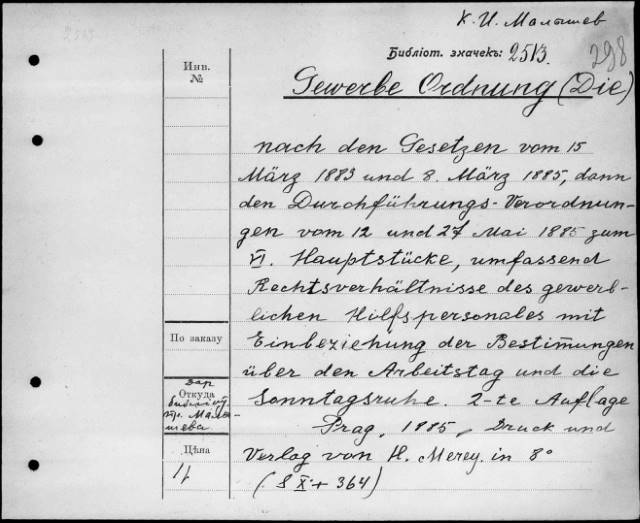 К. И. Малышев
2513
Библіот. значекъ: 2513.
298
Инв.
№
Gewerbe Ordnung (Die)
nach den Gesetzen vom 15
März 1883 und 8. März 1885, dann
den Durchführungs-Verordnun-
gen vom 12 und 27 Mai 1885 zum
VI. Hauptstücke, umfassend
Rechtsverhältnisse des gewerb-
lichen Hilfspersonales mit
Einbeziehung der Bestim̄ungen
über den Arbeitstag und die
Sonntagsruhe. 2-te Auflage
Prag, 1885, Druck und
Verlag von H. Mercy. in 8°
(S X + 364)
По заказу
дар
Откуда
пр. Малы
шева
Цѣна